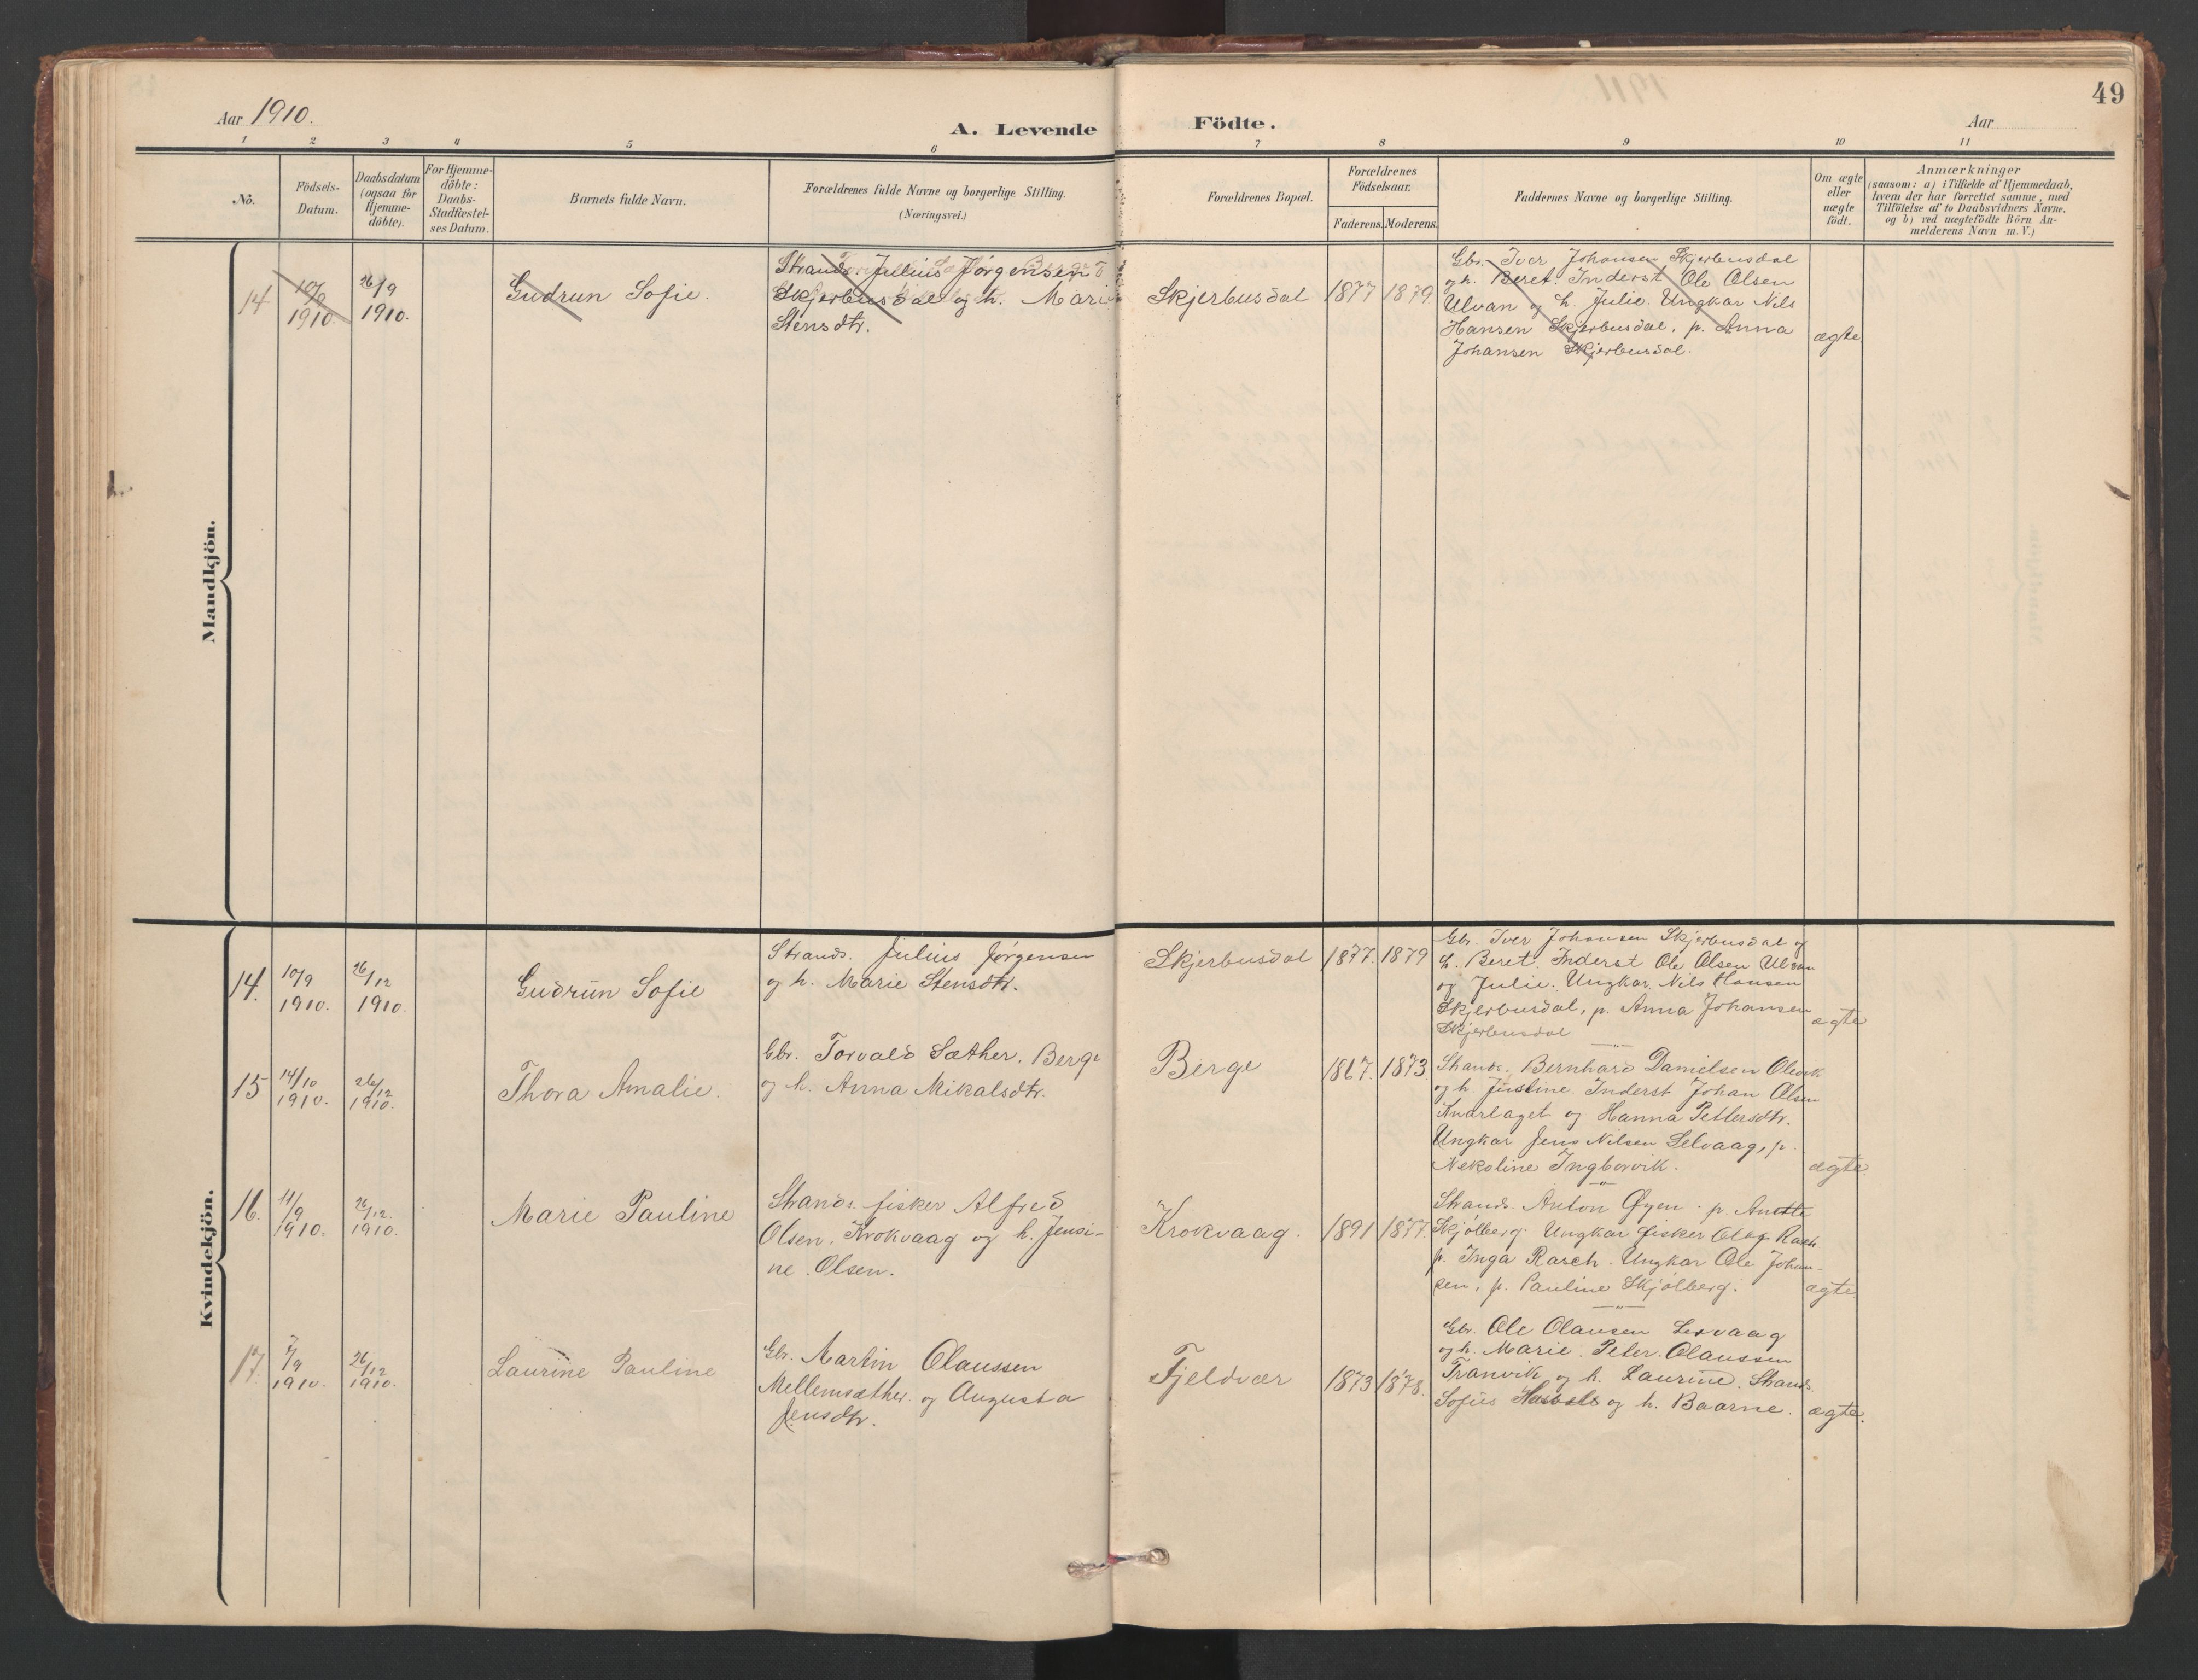 49
Aar 1910.
A. Levende Födte.
Aar
1 2 3 4 5 6 7 8 9 10 11
No.
Födsels-
Datum.
Daabsdatum
(ogsaa for
Hjemme-
döbte).
For Hjemme-
döbte:
Daabs-
Stadfæstel-
ses Datum.
Barnets fulde Navn.
Forældrenes fulde Navne og borgerlige Stilling.
(Næringsvei.)
Forældrenes Bopæl.
Forældrenes
Födselsaar.
Faderens. Moderens.
Faddernes Navne og borgerlige Stilling.
Om ægte
eller
uægte
födt.
Anmærkninger
(saasom: a) i Tilfælde af Hjemmedaab,
hvem der har forrettet samme, med
Tilföielse af to Daabsvidners Navne.
og b) ved uægtefödte Börn An-
melderens Navn m. V.)
Mandkjön.
14
10/9
1910.
26/9
1910.
Gudrun Sofie.
Strands. Julius Jørgensen
Skjerbusdal og h. Marie
Stensdtr.
Skjerbusdal
1877
1879
Gbr. Iver Johansen Skjerbusdal
og h. Beret. Inderst Ole Olsen
Ulvan og h. Julie. Ungkar Nils
Hansen Skjerbusdal, p. Anna
Johansen Skjerbusdal.
ægte
Kvindekjön.
14.
10/9
1910.
26/12
1910.
Gudrun Sofie
Strands. Julius Jørgensen
og h. Marie Stensdtr.
Skjerbusdal
1877.
1879
Gbr. Iver Johansen Skjerbusdal og
h. Beret. Inderst Ole Olsen Ulvan
og Julie. Ungkar Nils Hansen
Skjerbusdal, p. Anna Johansen
Skjerbusdal
ægte
15
14/10
1910.
26/12
1910.
Thora Amalie.
Gbr. Torvald Sæther, Berge
og h. Anna Mikalsdtr.
Berge
1867.
1873.
Strands. Bernhard Danielsen
og h. Justine. Inderst Johan Olsen
Knarlaget og Hanna Pettersdtr.
Ungkar Jens Nilsen Selvaag, p.
Nekoline Ingborvik.
ægte.
16.
11/9
1910.
26/12.
1910.
Marie Pauline
Strands. fisker Alfred
Olsen, Krokvaag og h. Jensi-
ne Olsen.
Krokvaag.
1891
1877.
Strands. Anton Øyen. p. Anette
Skjølberg. Ungkar fisker Olaf Rasch
p. Inga Rasch. Ungkar Ole Johan-
sen, p. Pauline Skjølberg.
ægte
17.
7/9
1910.
26/12
1910.
Laurine Pauline
Gbr. Martin Olaussen
Mellemsæther. og Augusta
Jensdtr.
Fjeldvær
1873
1878.
Gbr. Ole Olausen Lervaag
og h. Marie. Peter Olaussen
Tranvik og h. Laurine. Strands.
Sofus og h. Baarne.
ægte.